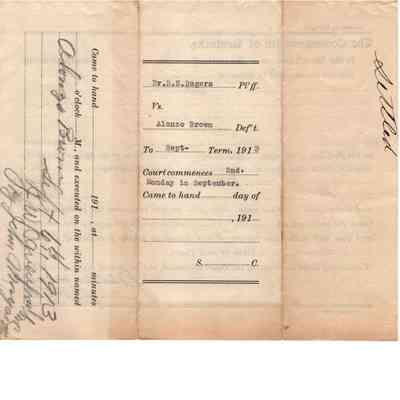 Came to hand 191 , at minutes
o'clock M., and executed on the within named
Alonzo Brown
Sept 6th 1913
By John
Dr.B.S.Bagers Pl'ff.
Vs.
Alonzo Brown Def't.
To Sept- Term, 1913
Court commences 2nd.
Monday in September.
Came to hand day of
, 191
S. C.
Settled
The Commonwealth of Kentucky